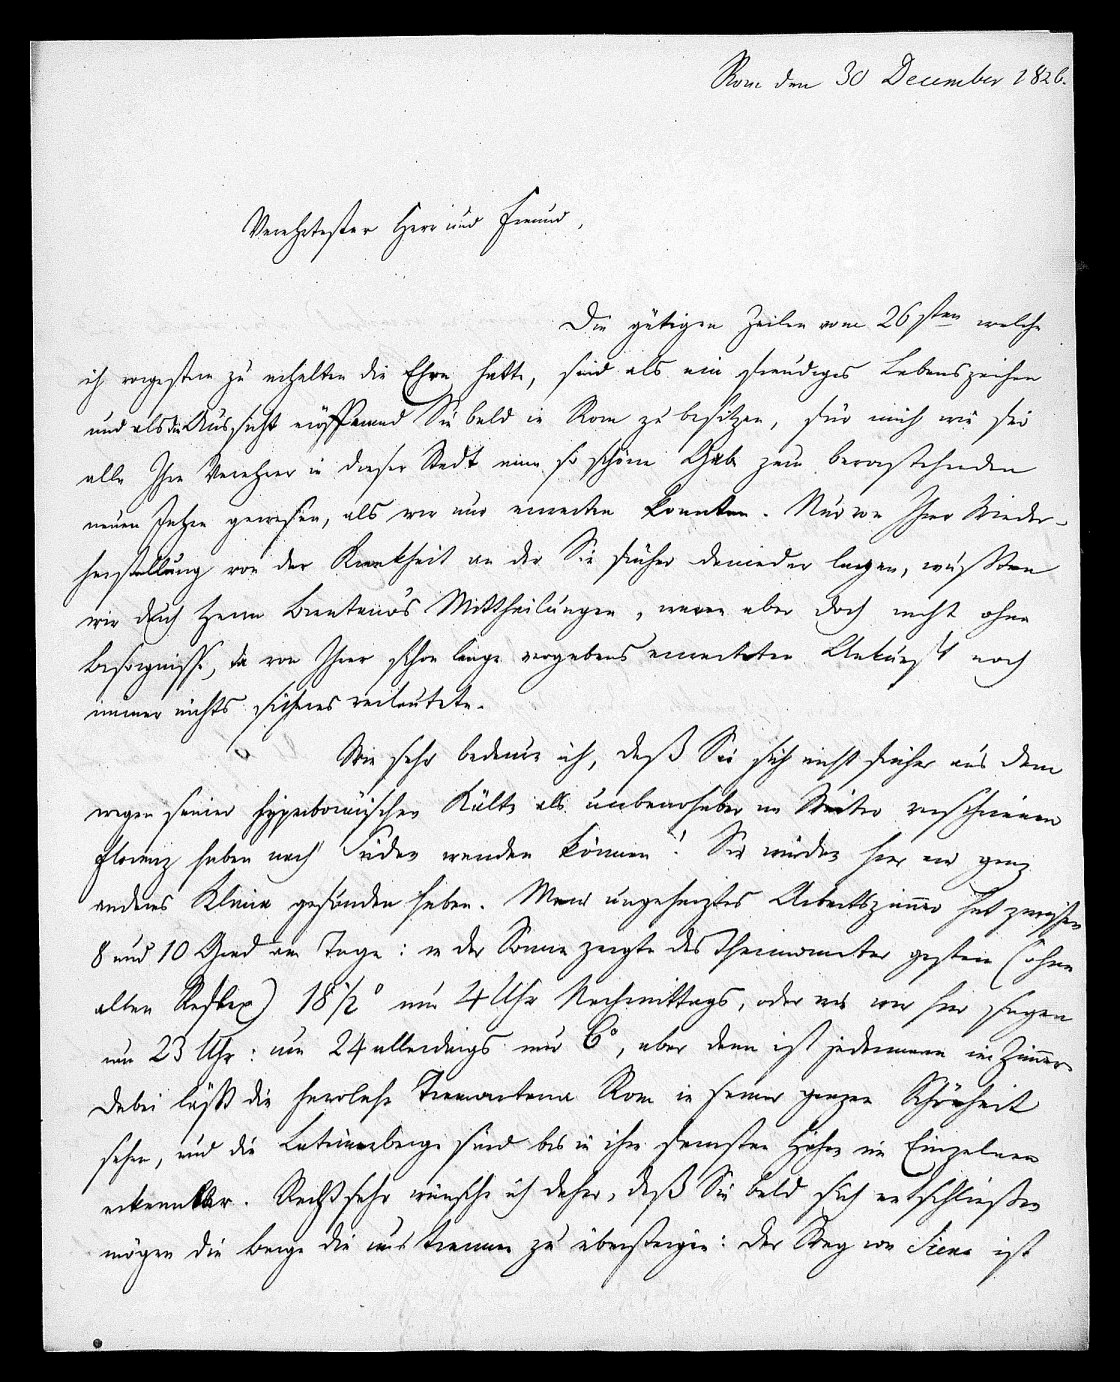 Rom den 30 December 1826.
Verehrtester Herr und Freund,
Die gütigen Zeilen vom 26sten welche
ich vorgestern zu erhalten die Ehre hatte, sind als ein freudiges Lebenszeichen
und als die Aussicht eröffnend Sie bald in Rom zu besitzen, für mich wie für
alle Ihre Verehrer in dieser Stadt eine so schöne Gabe zum bevorstehenden
neuen Jahre gewesen, als wir nur erwarten konnten. Nur von Ihrer Wieder-
herstellung von der Krankheit an der Sie früher danieder lagen, wußten
wir durch Herrn Brentano's Mittheilungen, waren aber doch nicht ohne
Besorgnisse, da von Ihrer schon lange vergebens erwarteten Ankunft noch
immer nichts sicheres verlautete.
Wie sehr bedaure ich, daß Sie sich nicht früher aus dem
wegen seiner hyperboräischen Kälte als unbewohnbar im Winter verschrieenen
Florenz haben nach Süden wenden können! Sie würden hier ein ganz
anderes Klima gefunden haben. Mein ungeheiztes Arbeitszimmer hat zwischen
8 und 10 Grad am Tage: in der Sonne zeigte das Thermometer gestern (ohne
allen Reflex) 18½° um 4 Uhr Nachmittags, oder wie wir hier sagen
um 23 Uhr: um 24 allerdings nur 6°, aber dann ist jedermann im Zimmer
Dabei läßt die herrliche Tramontana Rom in seiner ganzen Schönheit
sehen, und die Lateinerberge sind bis in ihre fernsten Höhen im Einzelnen
erkennbar. Recht sehr wünsche ich daher, daß Sie bald sich entschließen
mögen die Berge die uns trennen zu übersteigen: der Weg von Siena ist